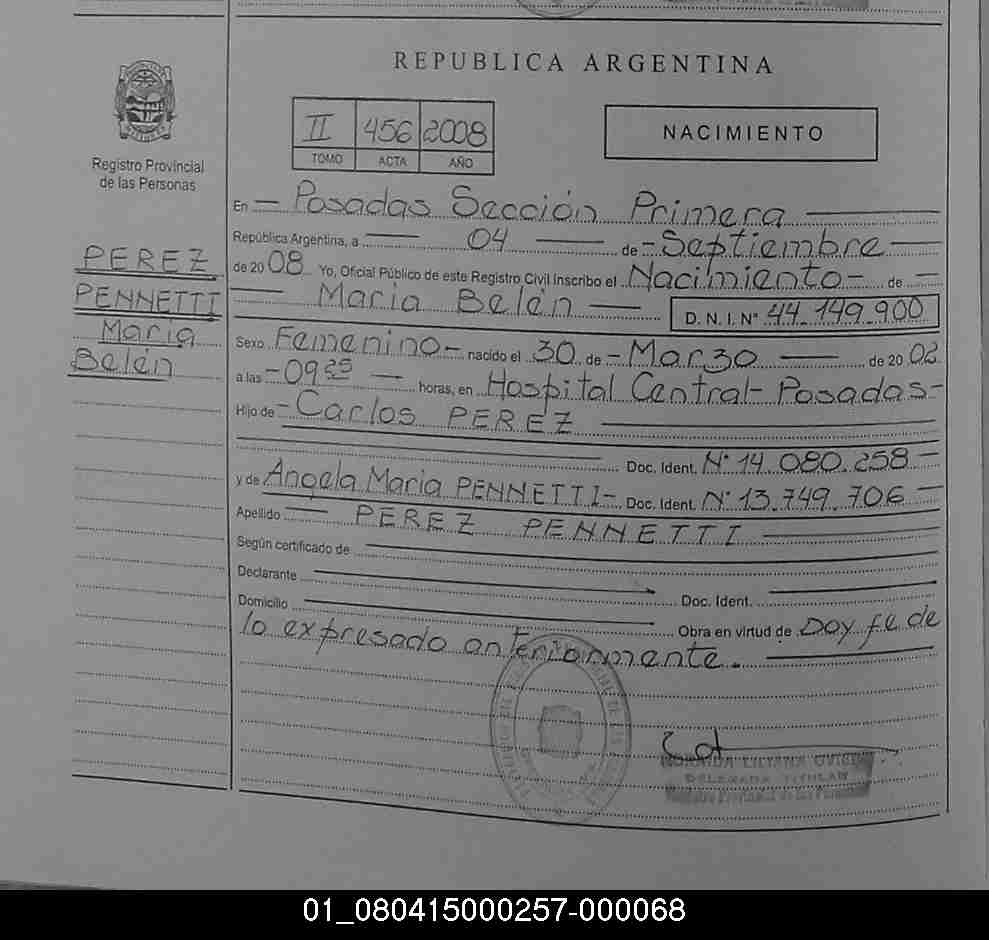 REPUBLICA ARGENTINA
II 456 2008
TOMO ACTA AÑO
NACIMIENTO
Registro Provincial
de las Personas
PEREZ
PENNETTI
Maria
Belén
En — Posadas Sección Primera
República Argentina, a — 04 — de — Septiembre —
de 2008 Yo, Oficial Público de este Registro Civil Inscribo el Nacimiento — de —
— Maria Belén — D. N. I. N° 44.149.900
Sexo Femenino — nacido el 30 de — Marzo — de 2002
a las — 09 25 — horas, en Hospital Central — Posadas —
Hijo de — Carlos PEREZ
Doc. Ident. N° 14.080.258 —
y de Angela Maria PENNETTI — Doc. Ident. N° 13.749.706 —
Apellido — PEREZ PENNETTI
Según certificado de
Declarante Doc. Ident.
Domicilio Obra en virtud de Doy fe de
lo expresado anteriormente.
LILIANA
DELEGADA TITULAR
01_080415000257-000068